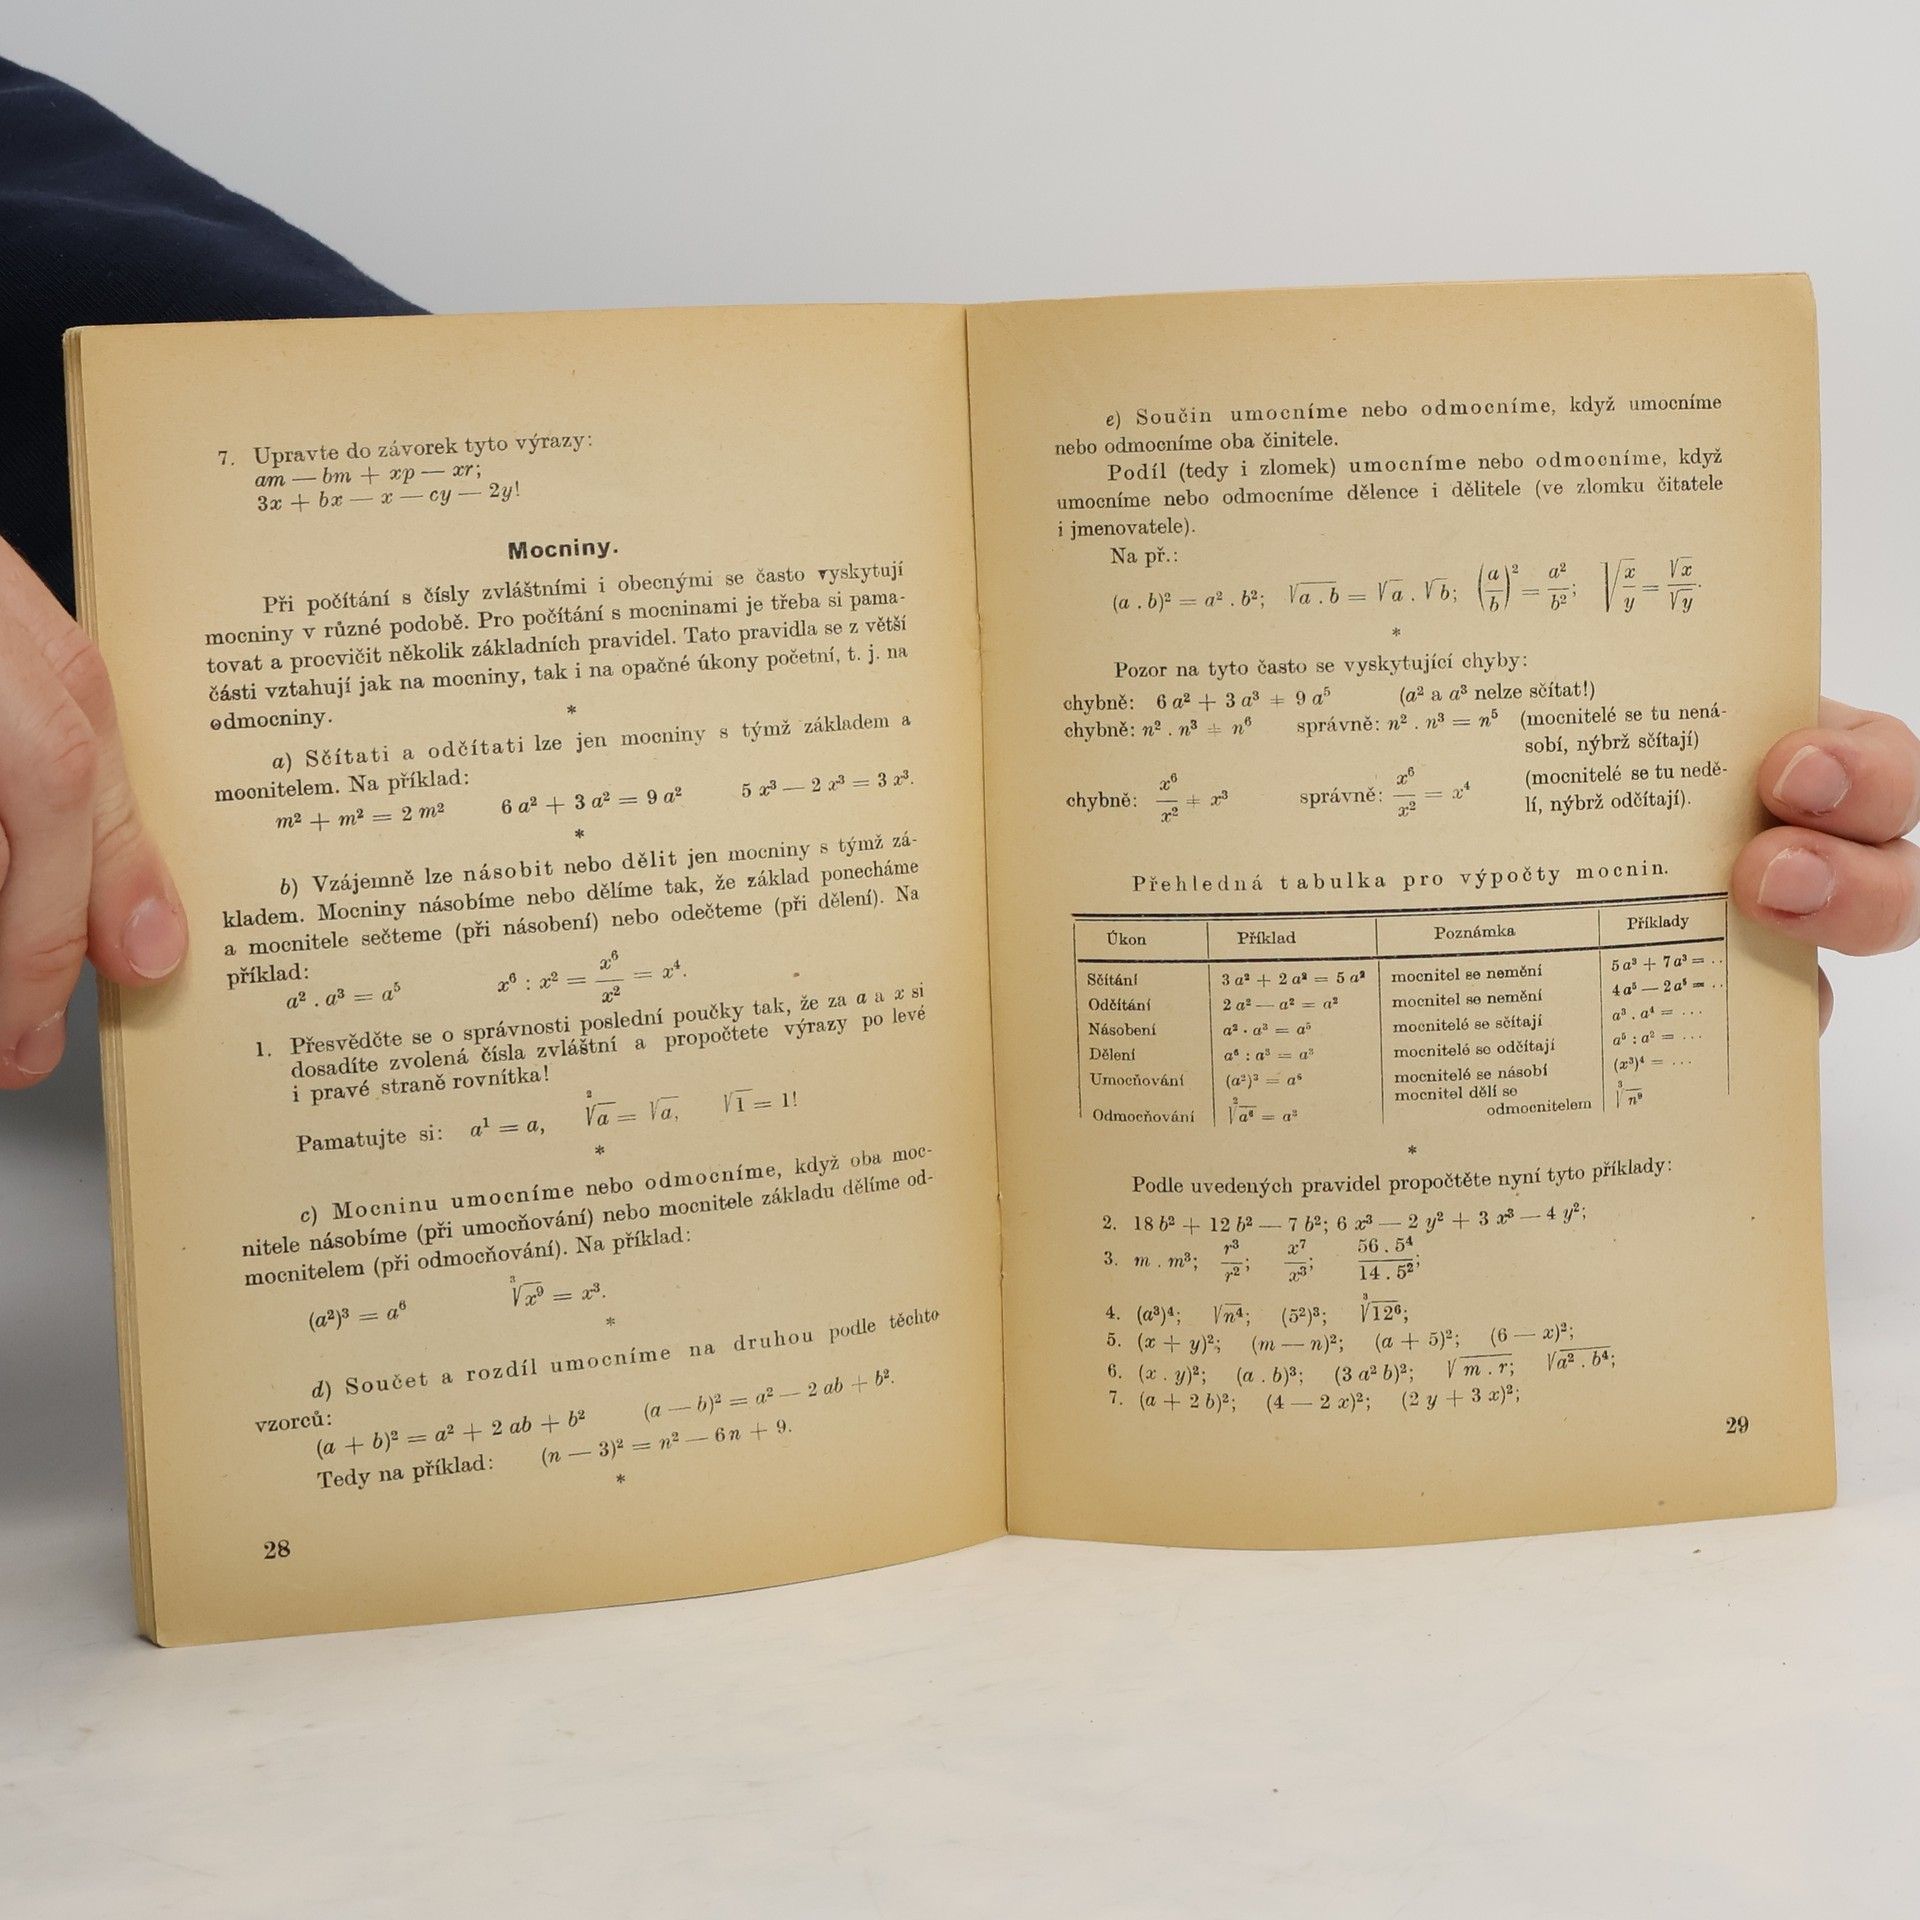 7. Upravte do závorek tyto výrazy:
am — bm + xp — xr;
3x + bx — x — cy — 2y!
Mocniny.
Při počítání s čísly zvláštními i obecnými se často vyskytují
mocniny v různé podobě. Pro počítání s mocninami je třeba si pama-
tovat a procvičit několik základních pravidel. Tato pravidla se z větší
části vztahují jak na mocniny, tak i na opačné úkony početní, t. j. na
odmocniny.
*
a) Sčítati a odčítati lze jen mocniny s týmž základem a
mocnitelem. Na příklad:
m² + m² = 2 m² 6 a² + 3 a² = 9 a² 5 x³ — 2 x³ = 3 x³.
*
b) Vzájemně lze násobit nebo dělit jen mocniny s týmž zá-
kladem. Mocniny násobíme nebo dělíme tak, že základ ponecháme
a mocnitele sečteme (při násobení) nebo odečteme (při dělení). Na
příklad:
a² . a³ = a⁵ x⁶ : x² = x⁶/x² = x⁴.
1. Přesvědčte se o správnosti poslední poučky tak, že za a a x si
dosadíte zvolená čísla zvláštní a propočtete výrazy po levé
i pravé straně rovnítka!
Pamatujte si: a¹ = a, ²√a = √a, √1 = 1!
*
c) Mocninu umocníme nebo odmocníme, když oba moc-
nitele násobíme (při umocňování) nebo mocnitele základu dělíme od-
mocnitelem (při odmocňování). Na příklad:
(a²)³ = a⁶ ³√x⁹ = x³.
*
d) Součet a rozdíl umocníme na druhou podle těchto
vzorců:
(a + b)² = a² + 2 ab + b² (a — b)² = a² — 2 ab + b².
Tedy na příklad: (n — 3)² = n² — 6n + 9.
*
28
e) Součin umocníme nebo odmocníme, když umocníme
nebo odmocníme oba činitele.
Podíl (tedy i zlomek) umocníme nebo odmocníme, když
umocníme nebo odmocníme dělence i dělitele (ve zlomku čitatele
i jmenovatele).
Na př.:
(a . b)² = a² . b²; √a . b = √a . √b; (a/b)² = a²/b²; √x/y = √x/√y.
*
Pozor na tyto často se vyskytující chyby:
chybně: 6 a² + 3 a³ ≠ 9 a⁵ (a² a a³ nelze sčítat!)
chybně: n² . n³ ≠ n⁶ správně: n² . n³ = n⁵ (mocnitelé se tu nená-
sobí, nýbrž sčítají)
chybně: x⁶/x² ≠ x³ správně: x⁶/x² = x⁴ (mocnitelé se tu nedě-
lí, nýbrž odčítají).
Přehledná tabulka pro výpočty mocnin.
Úkon Příklad Poznámka Příklady
Sčítání 3 a² + 2 a² = 5 a² mocnitel se nemění 5 a³ + 7 a³ = ..
Odčítání 2 a² — a² = a² mocnitel se nemění 4 a⁵ — 2 a⁵ = ..
Násobení a² . a³ = a⁵ mocnitelé se sčítají a³ . a⁴ = ...
Dělení a⁶ : a³ = a³ mocnitelé se odčítají a⁵ : a² = ...
Umocňování (a²)³ = a⁶ mocnitelé se násobí (x³)⁴ = ...
Odmocňování ²√a⁶ = a³ mocnitel dělí se ³√n⁹
odmocnitelem
*
Podle uvedených pravidel propočtěte nyní tyto příklady:
2. 18 b² + 12 b² — 7 b²; 6 x³ — 2 y² + 3 x³ — 4 y²;
3. m . m³; r³/r²; x⁷/x³; 56 . 5⁴/14 . 5²;
4. (a³)⁴; √n⁴; (5²)³; ³√12⁶;
5. (x + y)²; (m — n)²; (a + 5)²; (6 — x)²;
6. (x . y)²; (a . b)³; (3 a² b)²; √m . r; √a² . b⁴;
7. (a + 2 b)²; (4 — 2 x)²; (2 y + 3 x)²;
29